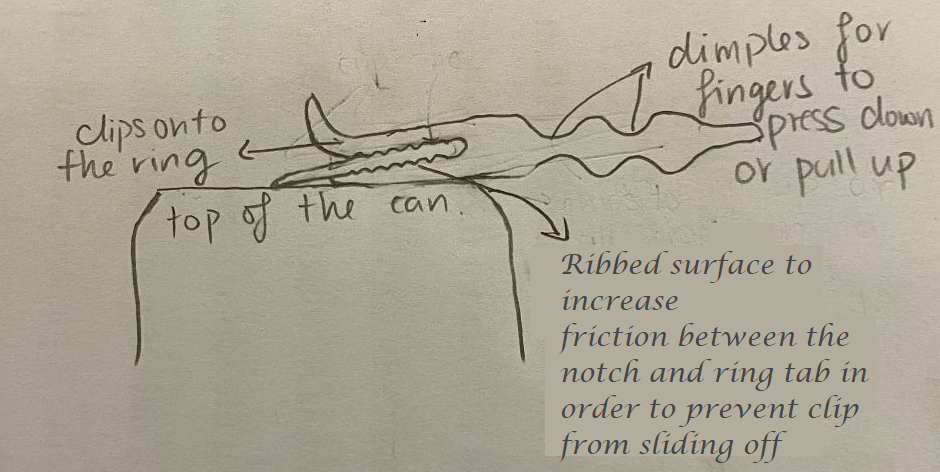 dimples for
fingers to
press down
or pull up
clips onto
the ring
top of the can.
Ribbed surface to
increase
friction between the
notch and ring tab in
order to prevent clip
from sliding off